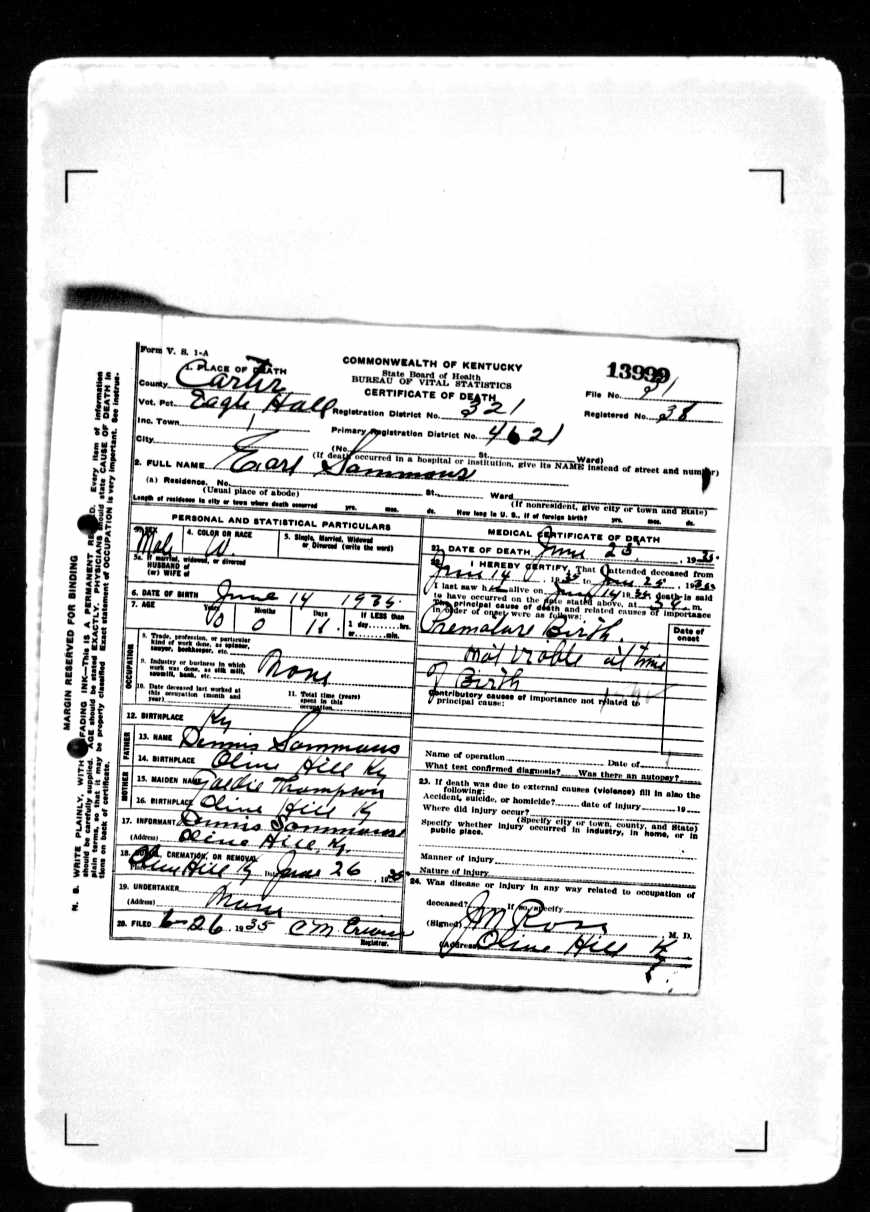 Form V. S. 1-A
COMMONWEALTH OF KENTUCKY
State Board of Health
BUREAU OF VITAL STATISTICS
CERTIFICATE OF DEATH
13999
File No. 31
Registered No. 38
1. PLACE OF DEATH
County Carter
Vot. Pct. Eagle Hall Registration District No. 321
Inc. Town Primary Registration District No. 4621
City (No. St. Ward)
(If death occurred in a hospital or institution, give its NAME instead of street and number)
2. FULL NAME Earl Sammons
(a) Residence. No. St., Ward
(Usual place of abode) (If nonresident, give city or town and State)
Length of residence in city or town where death occurred yrs. mos. ds. How long in U. S., if of foreign birth? yrs. mos. ds.
PERSONAL AND STATISTICAL PARTICULARS
3. SEX Male 4. COLOR OR RACE W. 5. Single, Married, Widowed or Divorced (write the word)
5a. If married, widowed, or divorced
HUSBAND of
(or) WIFE of
6. DATE OF BIRTH June 14 1935
7. AGE Years 0 Months 0 Days 11 If LESS than
1 day hrs.
or min.
OCCUPATION
8. Trade, profession, or particular
kind of work done, as spinner,
sawyer, bookkeeper, etc.
9. Industry or business in which
work was done, as silk mill,
sawmill, bank, etc. None
10. Date deceased last worked at
this occupation (month and
year)
11. Total time (years)
spent in this
occupation
12. BIRTHPLACE Ky
FATHER
13. NAME Dennis Sammons
14. BIRTHPLACE Olive Hill Ky
MOTHER
15. MAIDEN NAME Goldie Thompson
16. BIRTHPLACE Olive Hill Ky
17. INFORMANT Dennis Sammons
(Address) Olive Hill, Ky.
18. BURIAL, CREMATION, OR REMOVAL
Olive Hill Ky Date June 26, 1935
19. UNDERTAKER None
(Address)
20. FILED 6-26 1935 C M Erwin
Registrar.
MEDICAL CERTIFICATE OF DEATH
21. DATE OF DEATH June 25, 1935
22. I HEREBY CERTIFY, That I attended deceased from
June 14, 1935 to June 25, 1935
I last saw h alive on June 14 1935 death is said
to have occurred on the date stated above, at m.
The principal cause of death and related causes of importance
in order of onset were as follows:
Date of onset
Premature Birth.
not viable at time
of Birth
Contributory causes of importance not related to
principal cause:
Name of operation Date of
What test confirmed diagnosis? Was there an autopsy?
23. If death was due to external causes (violence) fill in also the
following:
Accident, suicide, or homicide? date of injury 19
Where did injury occur?
(Specify city or town, county, and State)
Specify whether injury occurred in industry, in home, or in
public place.
Manner of injury
Nature of injury
24. Was disease or injury in any way related to occupation of
deceased? If so, specify
(Signed) J M Ross, M. D.
(Address) Olive Hill Ky
MARGIN RESERVED FOR BINDING
N. B. WRITE PLAINLY, WITH UNFADING INK—THIS IS A PERMANENT RECORD. Every item of information
should be carefully supplied. AGE should be stated EXACTLY. PHYSICIANS should state CAUSE OF DEATH in
plain terms, so that it may be properly classified. Exact statement of OCCUPATION is very important. See instruc-
tions on back of certificate.